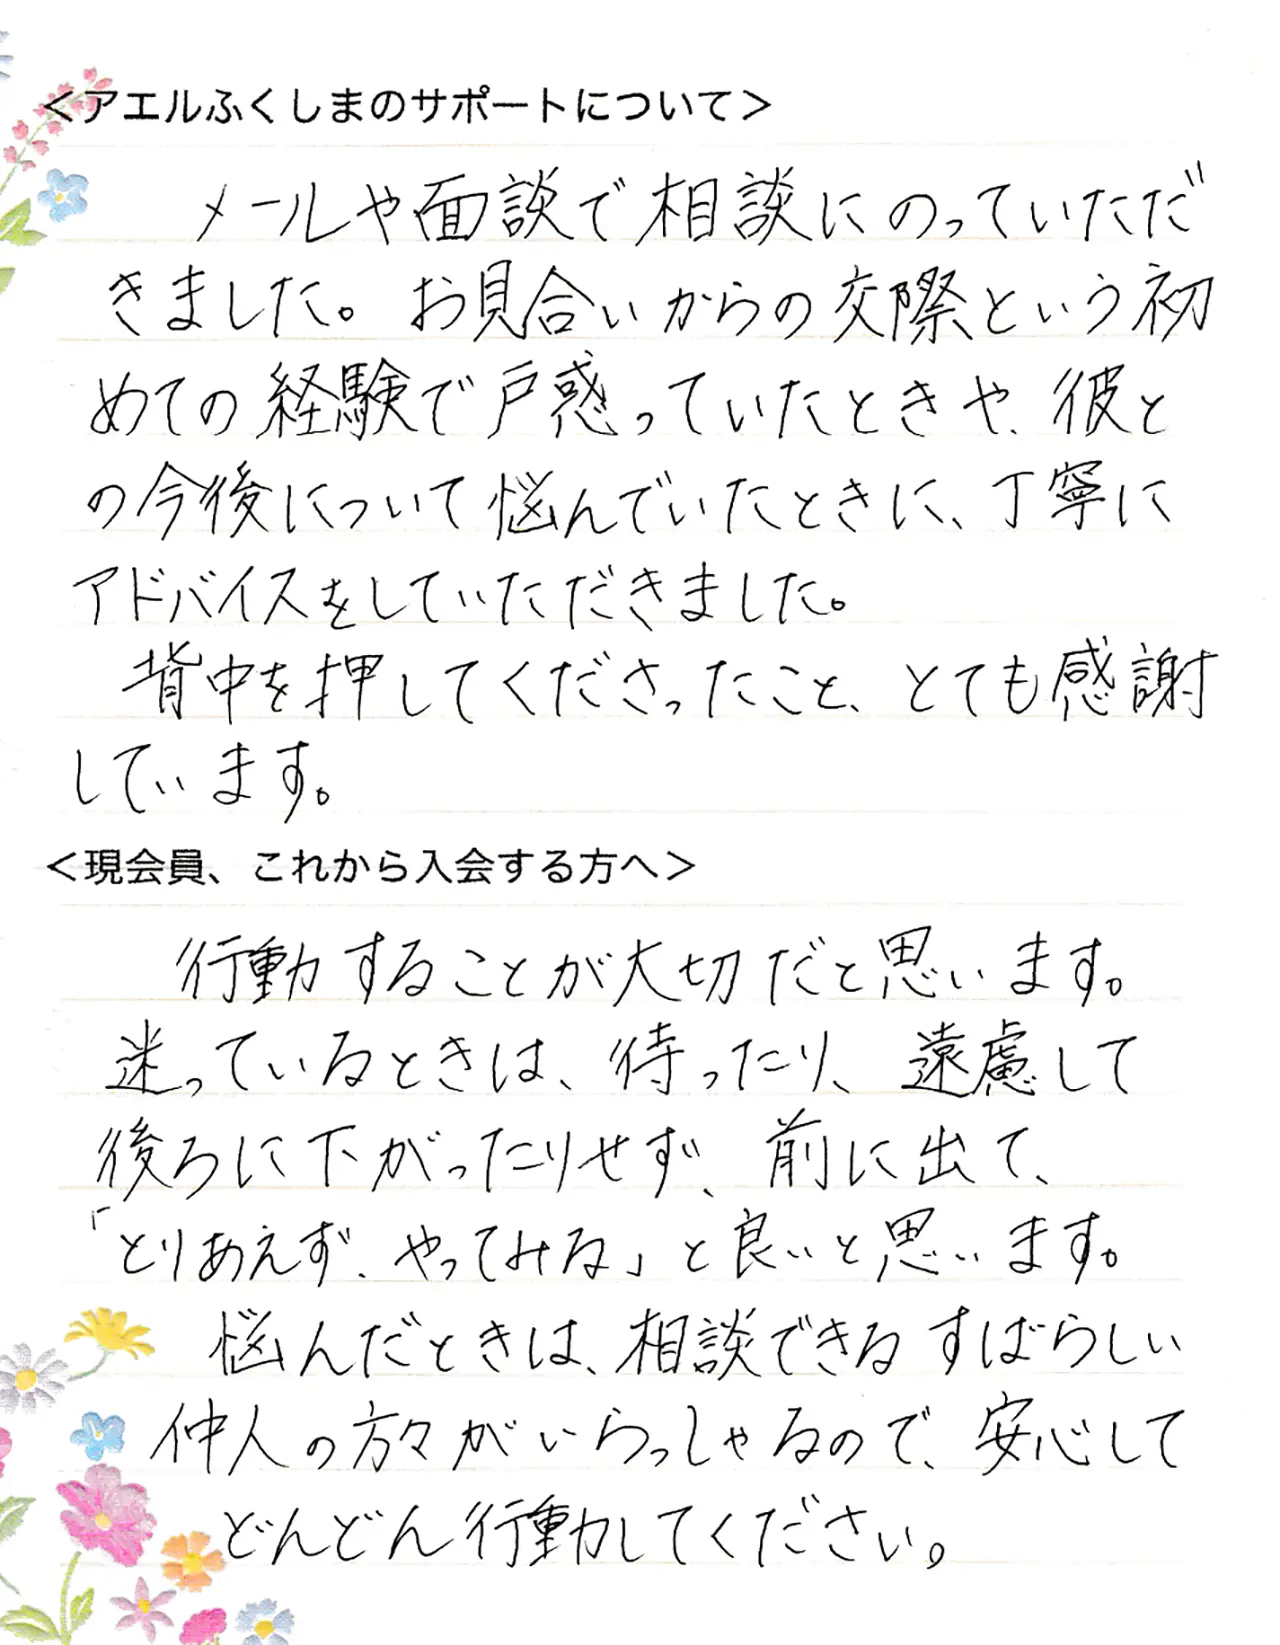 ＜アエルふくしまのサポートについて＞
メールや面談で相談にのっていただ
きました。お見合いからの交際という初
めての経験で戸惑っていたときや、彼と
の今後について悩んでいたときに、丁寧に
アドバイスをしていただきました。
背中を押してくださったこと、とても感謝
しています。
＜現会員、これから入会する方へ＞
行動することが大切だと思います。
迷っているときは、待ったり、遠慮して
後ろに下がったりせず、前に出て、
「とりあえず、やってみる」と良いと思います。
悩んだときは、相談できるすばらしい
仲人の方々がいらっしゃるので、安心して
どんどん行動してください。